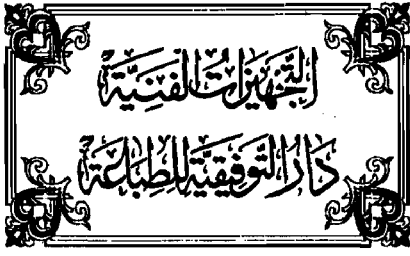 التجهيزات الفنية
دار التوفيقية للطباعة